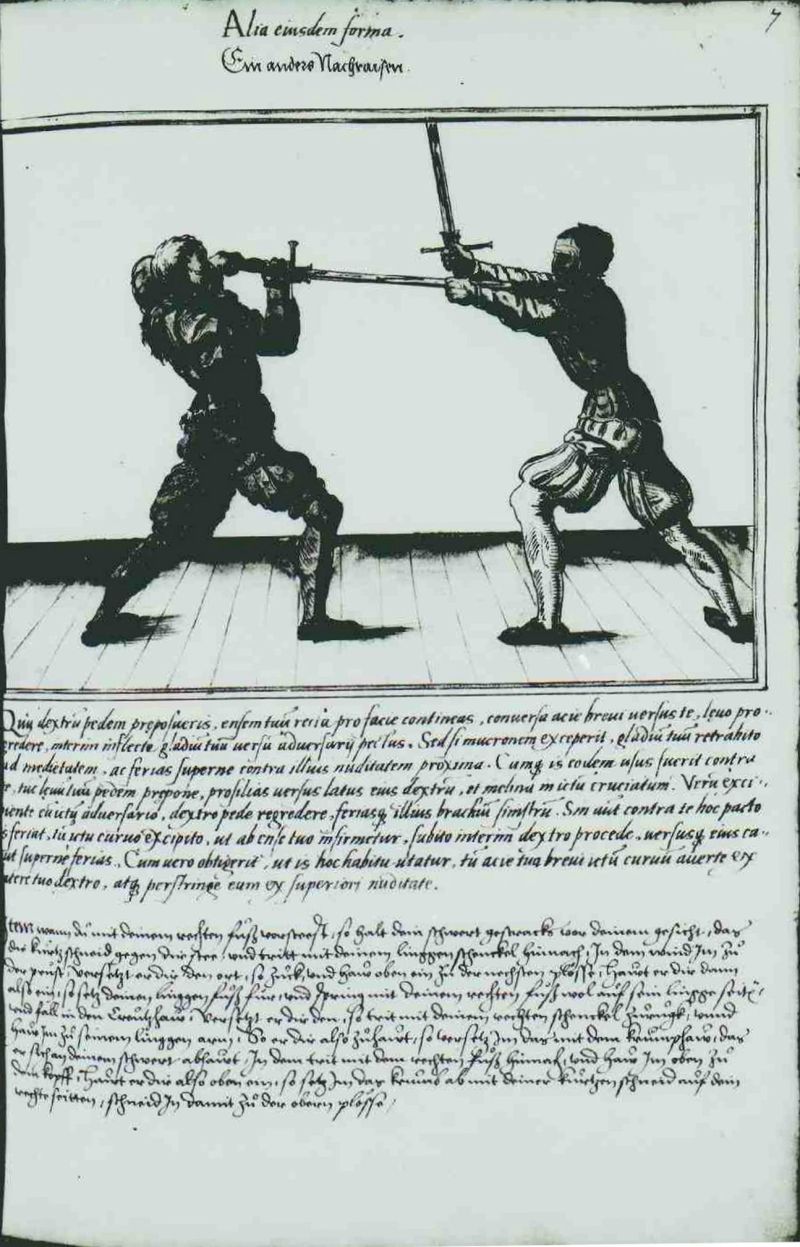 7
Alia eiusdem forma.
Ein anders Nachraisen.
Quū dextrū pedem preposueris, ensem tuū recta pro facie contineas, conuersa acie breui uersus te, leuo pro-
gredere, interim inflecte gladiū tuū uersū aduersarij pectus. Sed si mucronem exceperit, gladiū tuū retrahito
ad medietatem, ac ferias superne contra illius nuditatem proximā. Cumq; is eodem usus fuerit contra
te, tuc leuū tuū pedem prepone, prosilias uersus latus eius dextrū, et inclina in ictū cruciatum. Verū exci-
piente eū ictū aduersario, dextro pede regredere, feriasq; illius brachiū sinistrū. Sin aūt contra te hoc pacto
is feriat, tū ictu curuo excipito, ut ab ense tuo infirmetur, subito interim dextro procede, uersusq; eius ca-
put superne ferias. Cum uero obtigerit, ut is hoc habitu utatur, tū acie tua breui ictū curuū auerte ex
latere tuo dextro, atq; perstringe eum ex superiori nuditate.
Item wann du mit deinem rechten fuß vorsteest, so halt dein schwert gestracks vor deinem gesicht, das
die kurtz schneid gegen dir stee, vnd tritt mit deinem linggen schenckel hinnach, In dem wind Im zu
der prust, versetzt er dir den ort, so zuck, vnd haw oben ein zu der nechsten plösse, hawt er dir dann
also ein, so setz deinen linggen fuß für, vnd spring mit deinem rechten fuß wol auf sein lingge seitē,
vnd fall in den Creutzhaw, Versetzt er dir den, so trit mit deinem rechten schenckel zurugk, vnnd
haw Im zu seinem linggen arm, So er dir also zuhawt, so versetz Im das mit dem krumphaw, das
er sich an deinem schwert abhawt, In dem trit mit dem rechten fuß hinnach, vnd haw Im oben zu
dem kopff, hawt er dir also oben ein, so setz Im das krumb ab mit deiner kurtzen schneid auf dein
rechte seitten, schneid In damit zu der obern plösse,